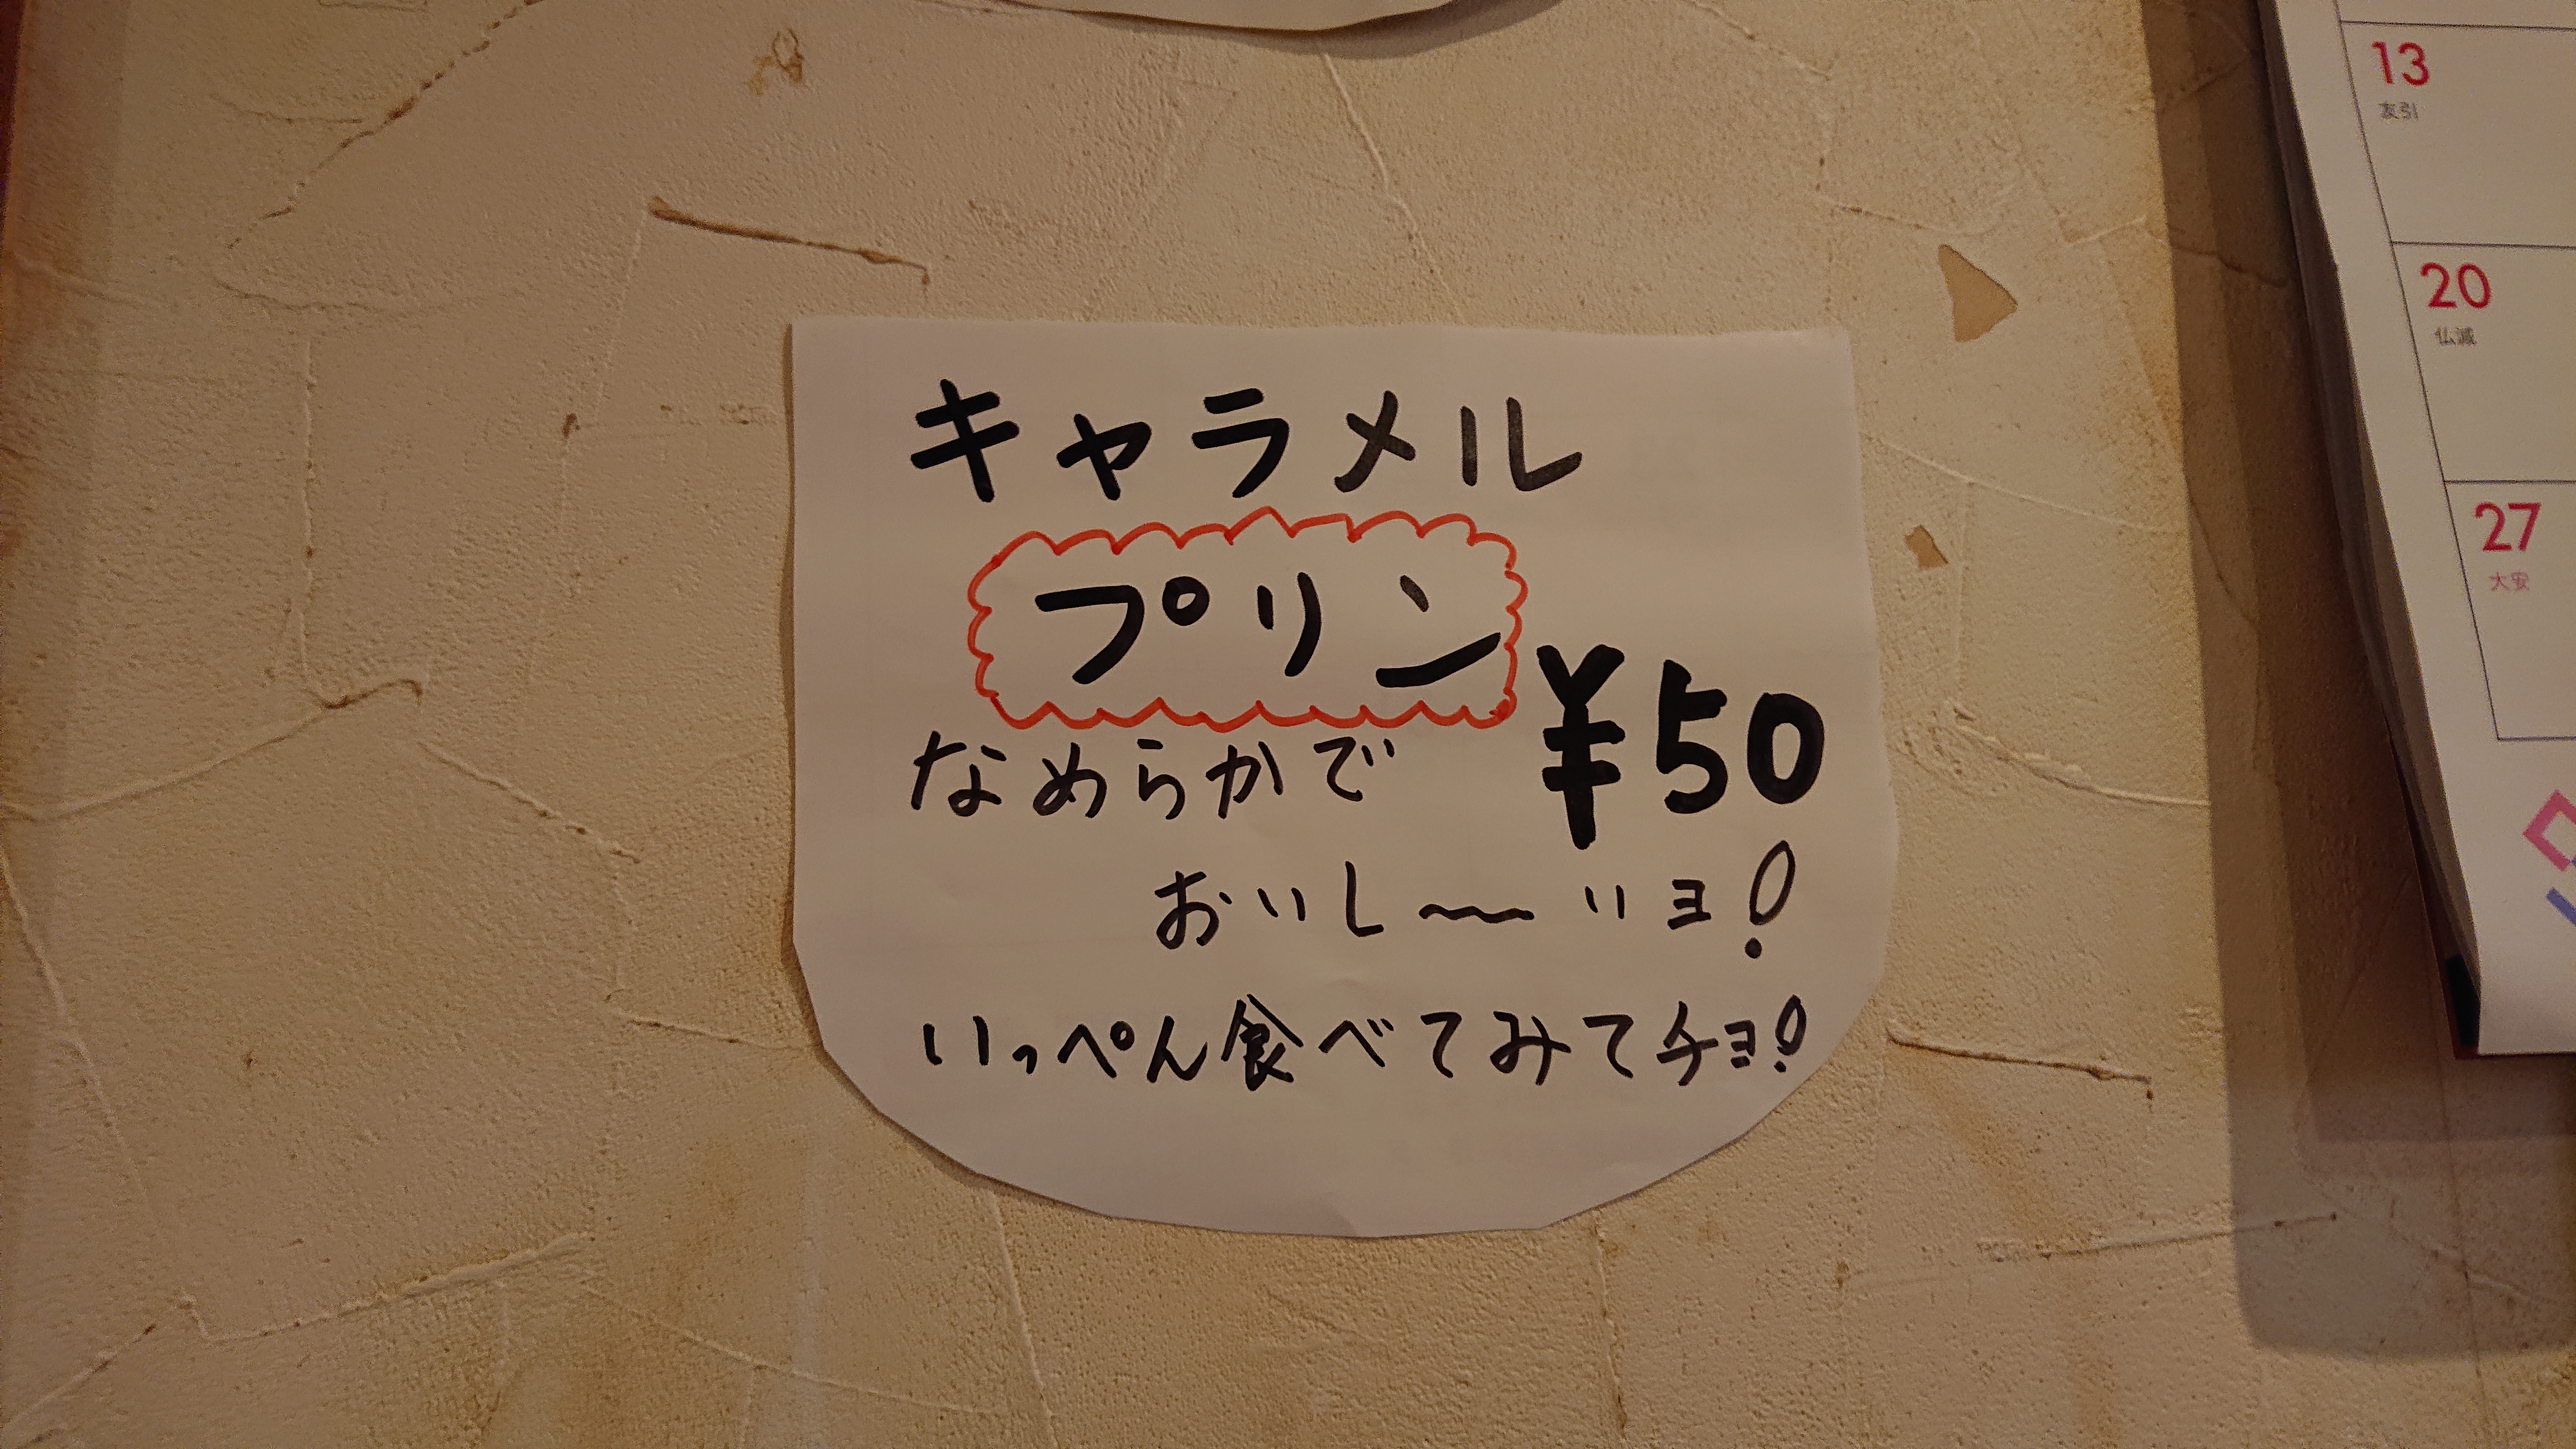 キャラメル
プリン
¥50
なめらかで
おいし〜〜いヨ!
いっぺん食べてみてチョ!
13
友引
20
仏滅
27
大安